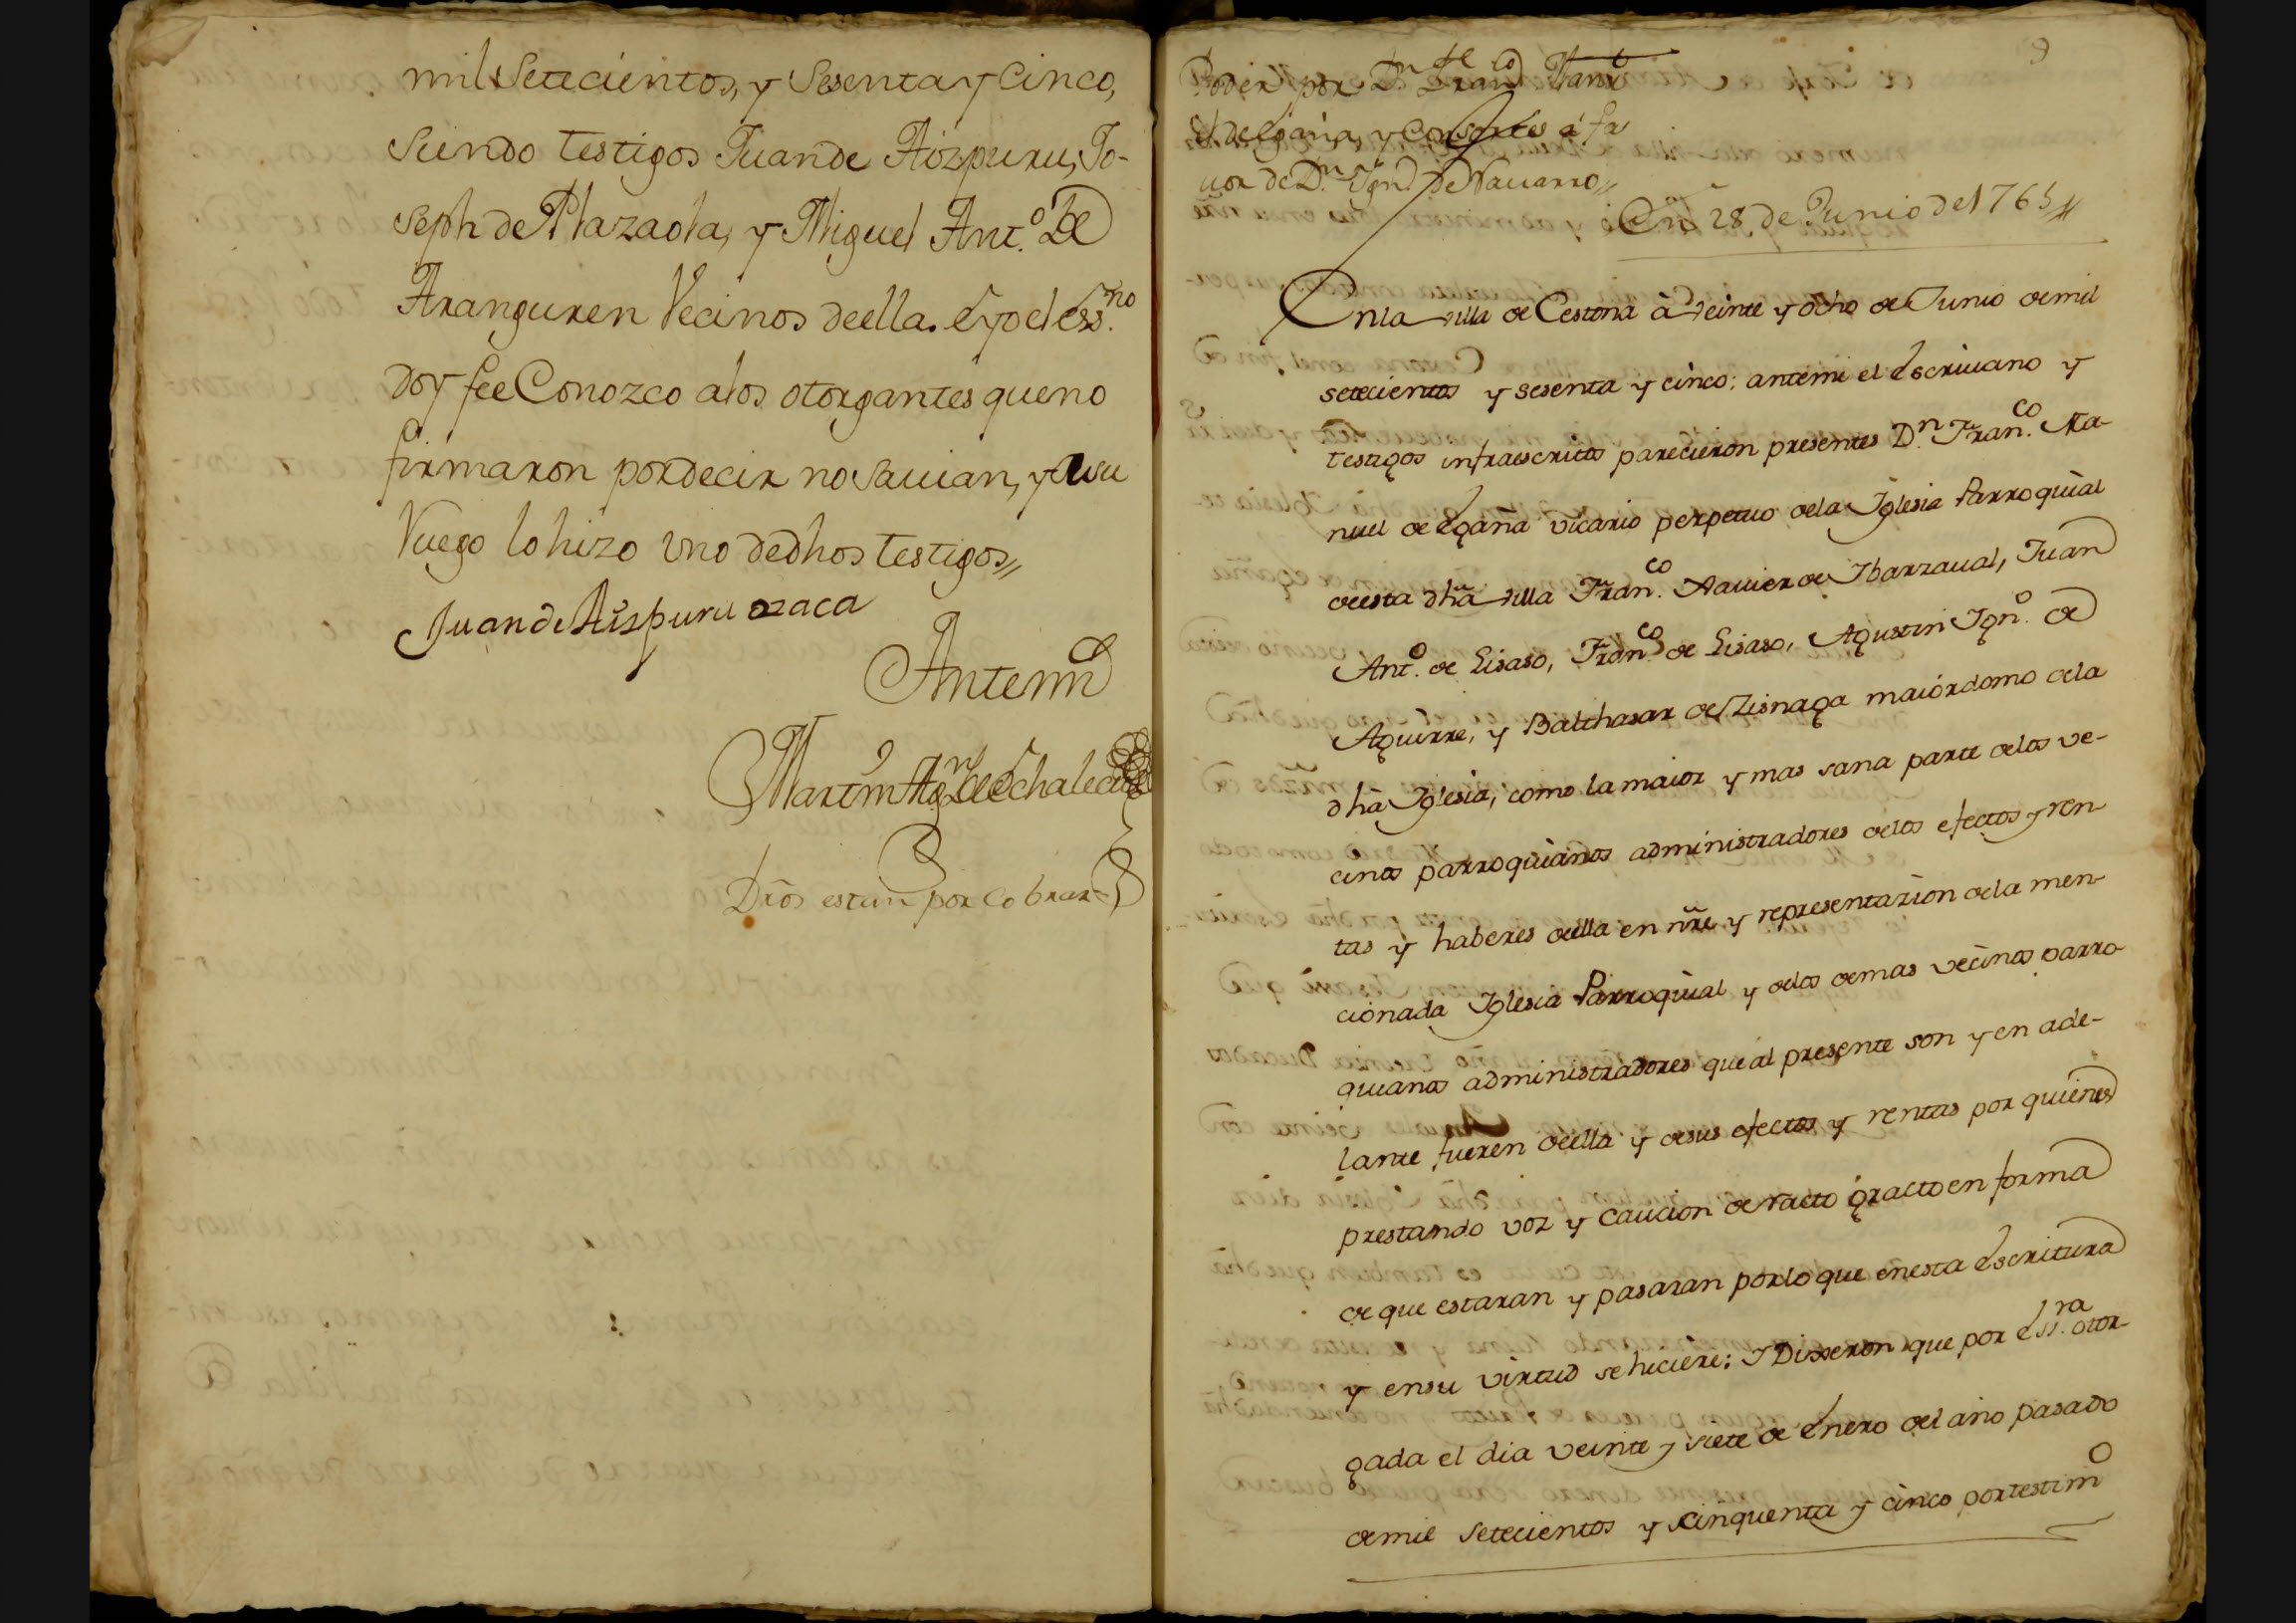 mil Setecientos, y Sesenta y Cinco,
Siendo testigos Juan de Aizpuru, Jo-
seph de Plazaola, y Miguel Ant.º De
Aranguren Vecinos de ella. E yo el ess.no
doy fee Conozco a los otorgantes que no
firmaron por decir no savian, y a su
Ruego lo hizo uno de dhos testigos//
Juan de Aispuru azaca
Antemi
Martin Ag.n de Echalecu
Dros estan por Cobrar
9
Poder por D.n Fran.co Man.l
de Egaña, y Consortes à fa
uor de D.n Ign.o de Nauarro//
En 28 de Junio de 1765//
En la villa de Cestona à veinte y ocho de Junio de mil
setecientos y sesenta y cinco; antemi el Escriuano y
testigos infraescritos parecieron presentes D.n Fran.co Ma-
nuel de Egaña vicario perpetuo de la Iglesia Parroquial
de esta dhã villa Fran.co Xauier de Ibarzaual, Juan
Ant.º de Lisaso, Fran.co de Lisaso, Agustin Ign.º de
Aguirre, y Balthasar de Zisnaga maiordomo de la
dhã Iglesia, como la maior y mas sana parte de los ve-
cinos parroquianos administradores de los efectos y ren-
tas y haberes de ella en nr̃e y representazion de la men-
cionada Iglesia Parroquial y de los demas vecinos parro-
quianos administradores que al presente son y en ade-
lante fueren de ella y de sus efectos y rentas por quienes
prestando voz y caucion de racto gracto en forma
de que estaran y pasaran por lo que en esta Escritura
y en su virtud se hiciere: I Dixeron que por Ess.ra otor-
gada el dia veinte y siete de Enero del año pasado
de mil Setecientos y cinquenta y cinco por testim.º